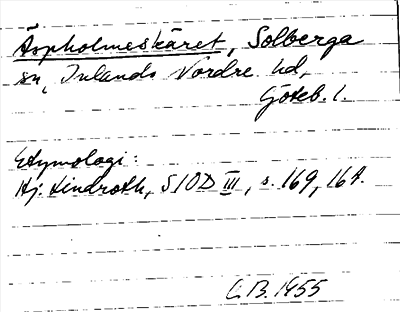 Äspholmeskäret, Solberga
sn, Inlands Nordre hd,
Göteb. l.
Etymologi:
Hj. Lindroth, SIOD III, s. 169, 164.
C. B. 1955